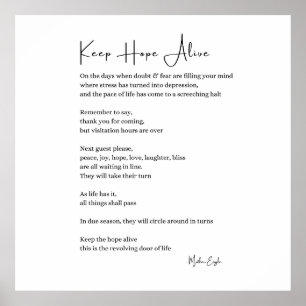 Keep Hope Alive
On the days when doubt & fear are filling your mind
where stress has turned into depression,
and the pace of life has come to a screeching halt
Remember to say,
thank you for coming,
but visitation hours are over
Next guest please,
peace, joy, hope, love, laughter, bliss
are all waiting in line.
They will take their turn
As life has it,
all things shall pass
In due season, they will circle around in turns
Keep the hope alive
this is the revolving door of life